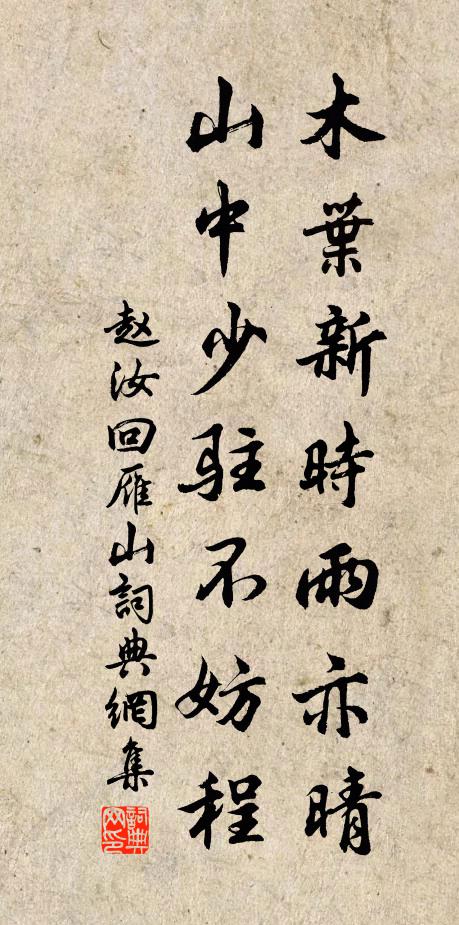 木葉新時雨亦晴
山中少駐不妨程
赵汝回雁山詞典網集
詞典網印